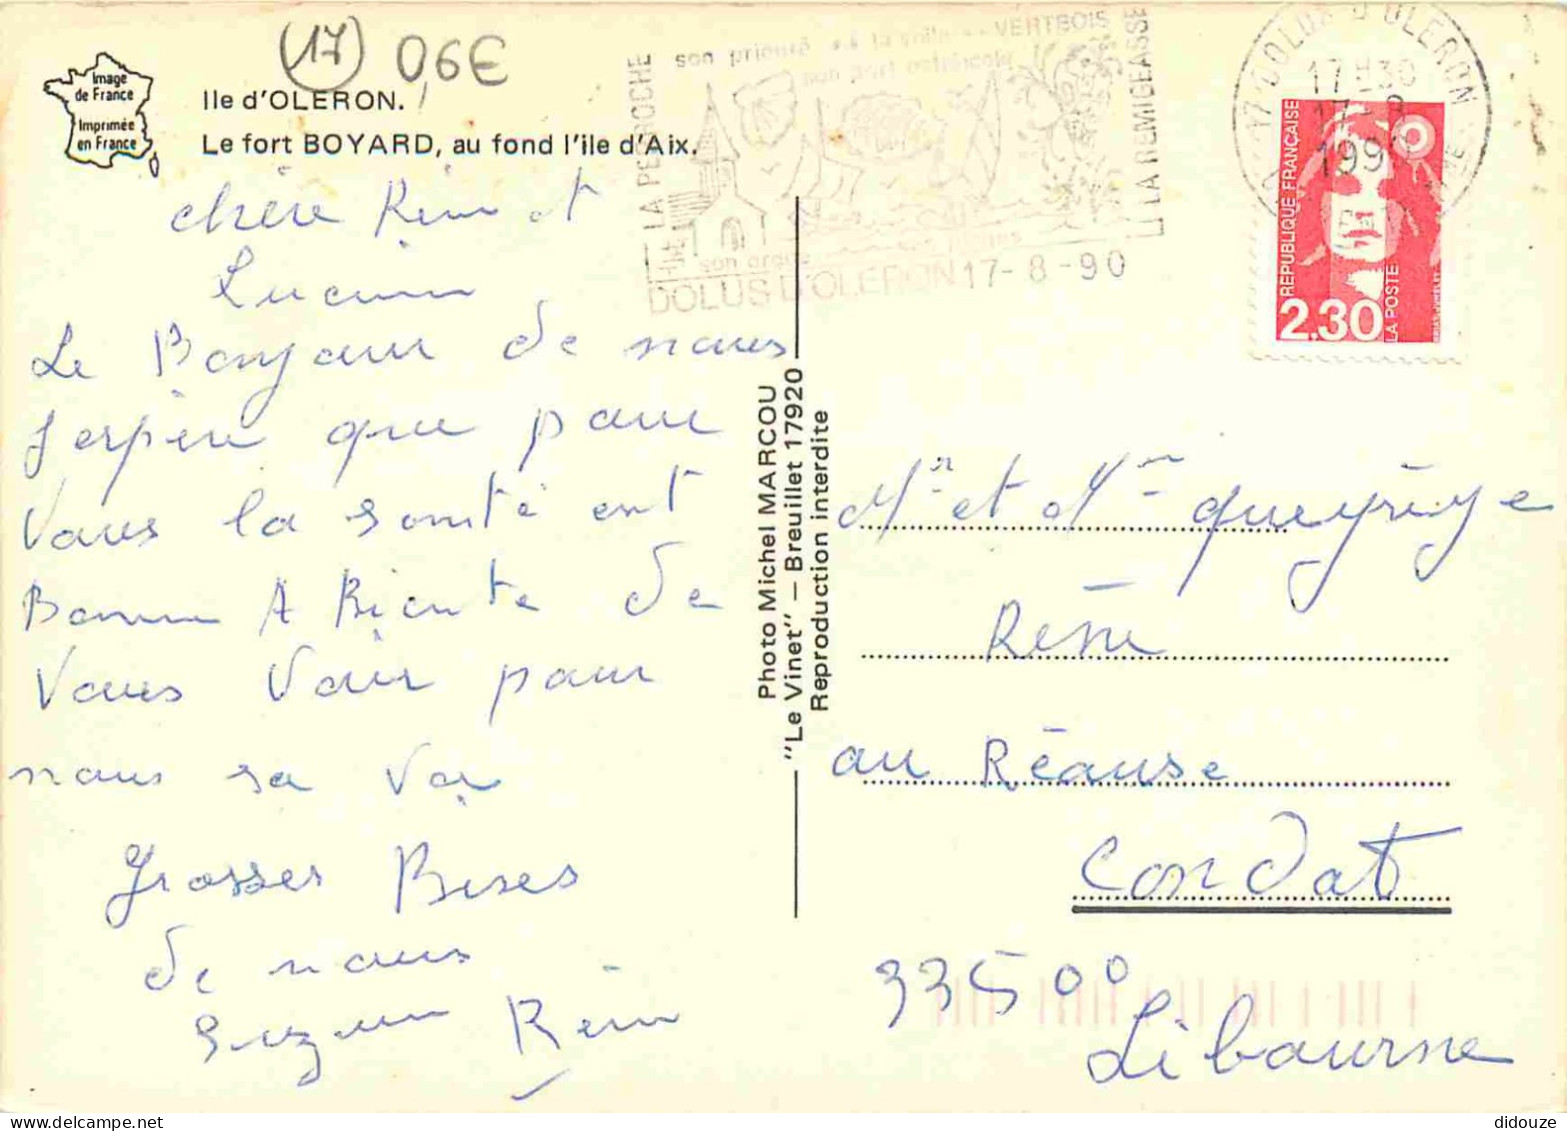 17
0,6€
Image
de France
Imprimée
en France
Ile d'OLERON.
Le fort BOYARD, au fond l'ile d'Aix.
LA PERROCHE
son prieuré
la voile
VERTBOIS
son port ostréicole
LA REMIGEASSE
DOLUS D'OLERON 17-8-90
17 DOLUS D'OLERON
17 H 30
17-8
1990
REPUBLIQUE FRANÇAISE
2.30
LA POSTE
chère Réne et
Lucienne
Le Bonjour de nous
J'espère que pour
Vous la santé ent
Bonne A Biento de
Vous Voir pour
nous sa va
Grosses Bises
de nous
Suzanne Réne
Photo Michel MARCOU
"Le Vinet" – Breuillet 17920
Reproduction interdite
Mr et Mme queyreye
Réne
au Réause
Condat
33500
Libourne
didouze